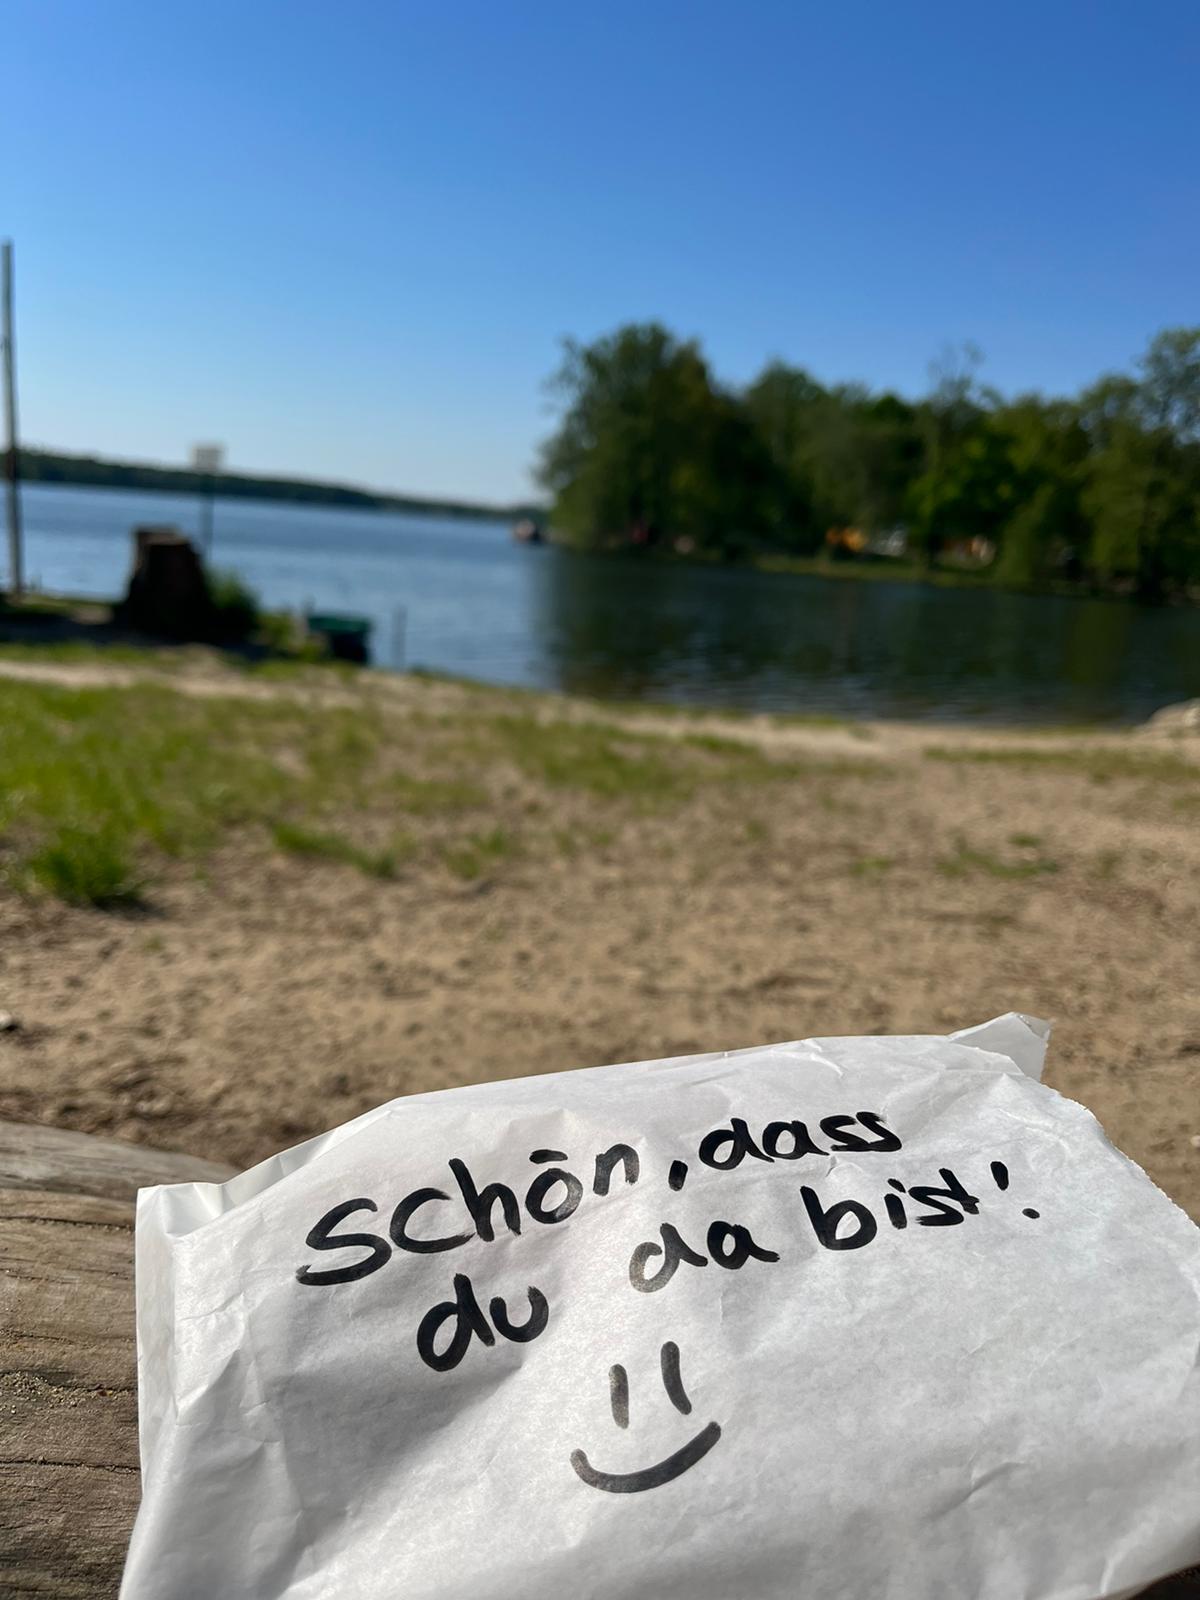 Schön, dass
du da bist!